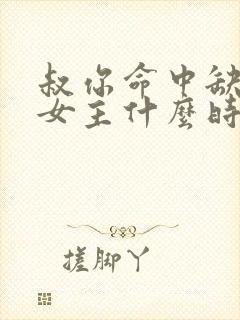 叔你命中缺
女主什麼時
搓脚丫